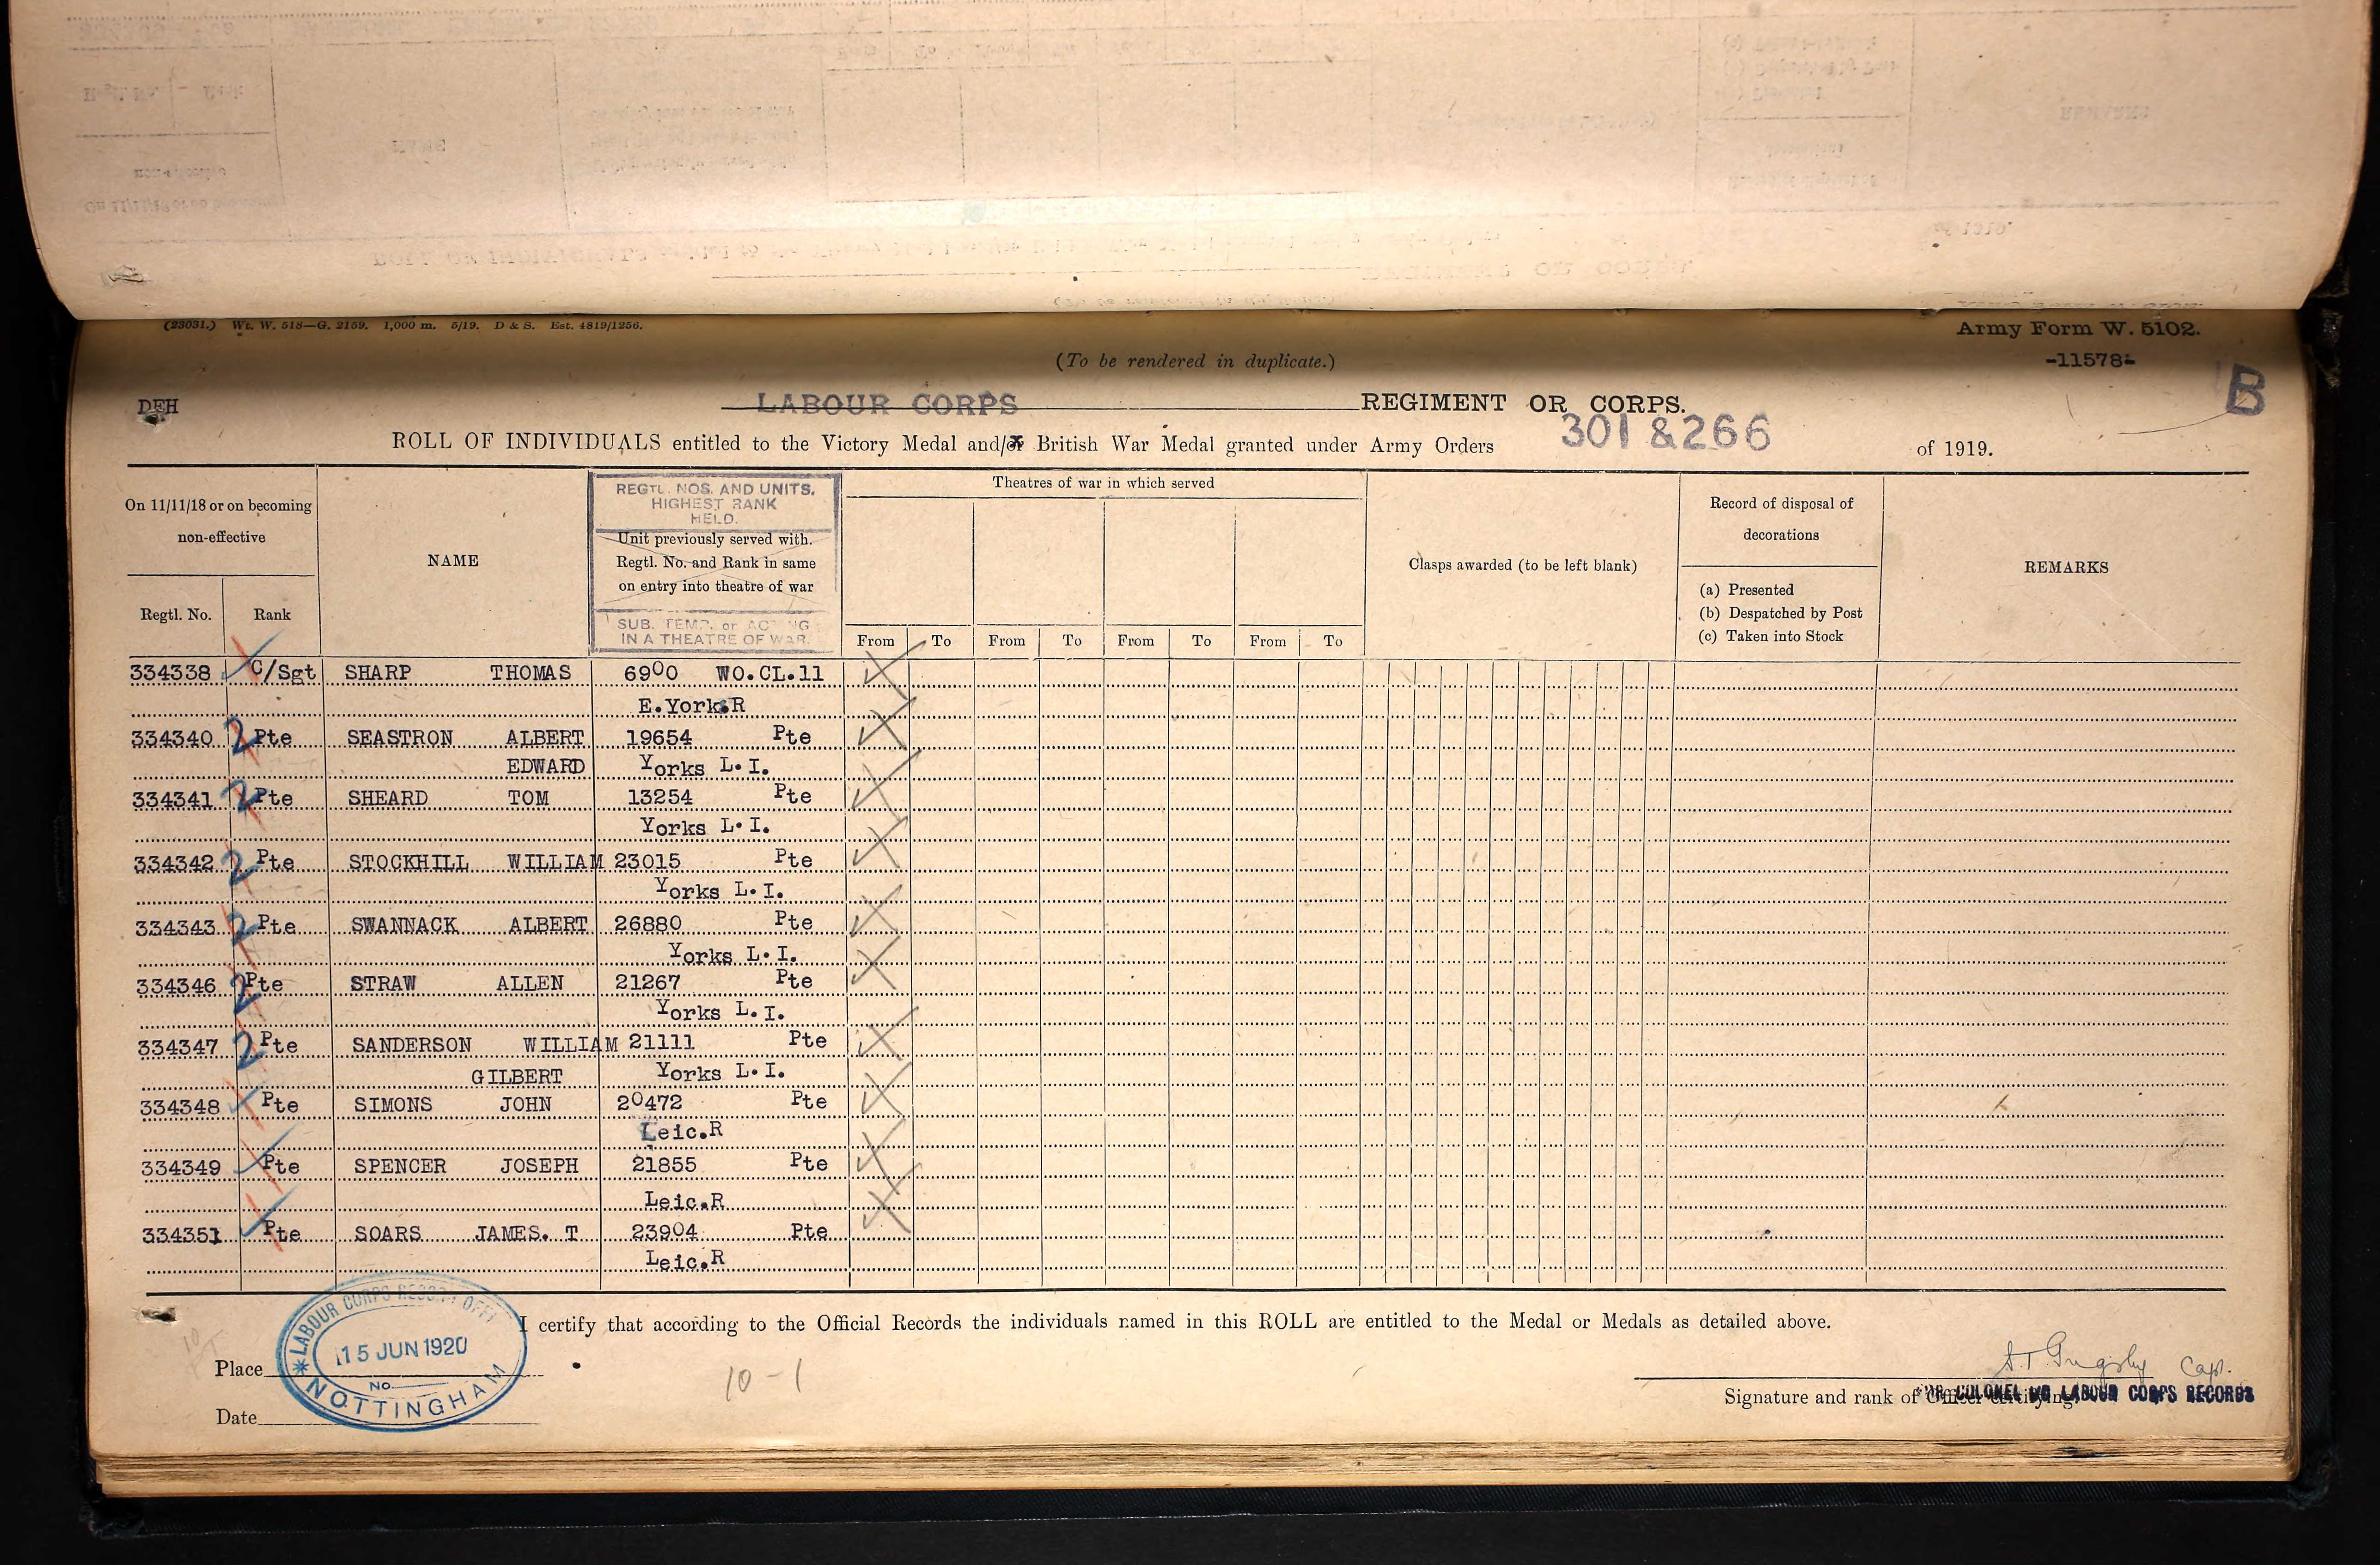 (23031.) Wt. W. 518—G. 2159. 1,000 m. 5/19. D & S. Est. 4819/1256.
Army Form W. 5102.
(To be rendered in duplicate.)
-11578-
B
DEH
LABOUR CORPS REGIMENT OR CORPS.
ROLL OF INDIVIDUALS entitled to the Victory Medal and/or British War Medal granted under Army Orders 301 & 266 of 1919.
On 11/11/18 or on becoming
non-effective
Regtl. No.
Rank
NAME
REGTL. NOS. AND UNITS.
HIGHEST RANK
HELD.
Unit previously served with.
Regtl. No. and Rank in same
on entry into theatre of war
SUB. TEMP. or ACTING
IN A THEATRE OF WAR.
Theatres of war in which served
From To From To From To From To
Clasps awarded (to be left blank)
Record of disposal of
decorations
(a) Presented
(b) Despatched by Post
(c) Taken into Stock
REMARKS
334338 C/Sgt SHARP THOMAS 6900 WO.CL.11
E.York.R
334340 2 Pte SEASTRON ALBERT 19654 Pte
EDWARD Yorks L.I.
334341 2 Pte SHEARD TOM 13254 Pte
Yorks L.I.
334342 2 Pte STOCKHILL WILLIAM 23015 Pte
Yorks L.I.
334343 2 Pte SWANNACK ALBERT 26880 Pte
Yorks L.I.
334346 2 Pte STRAW ALLEN 21267 Pte
Yorks L.I.
334347 2 Pte SANDERSON WILLIAM 21111 Pte
GILBERT Yorks L.I.
334348 Pte SIMONS JOHN 20472 Pte
Leic.R
334349 Pte SPENCER JOSEPH 21855 Pte
Leic.R
334351 Pte SOARS JAMES. T 23904 Pte
Leic.R
I certify that according to the Official Records the individuals named in this ROLL are entitled to the Medal or Medals as detailed above.
LABOUR CORPS RECORD OFFI
15 JUN 1920
No.
NOTTINGHAM
Place
Date
10-1
Capt.
Signature and rank of Officer certifying
COLONEL I/C LABOUR CORPS RECORDS